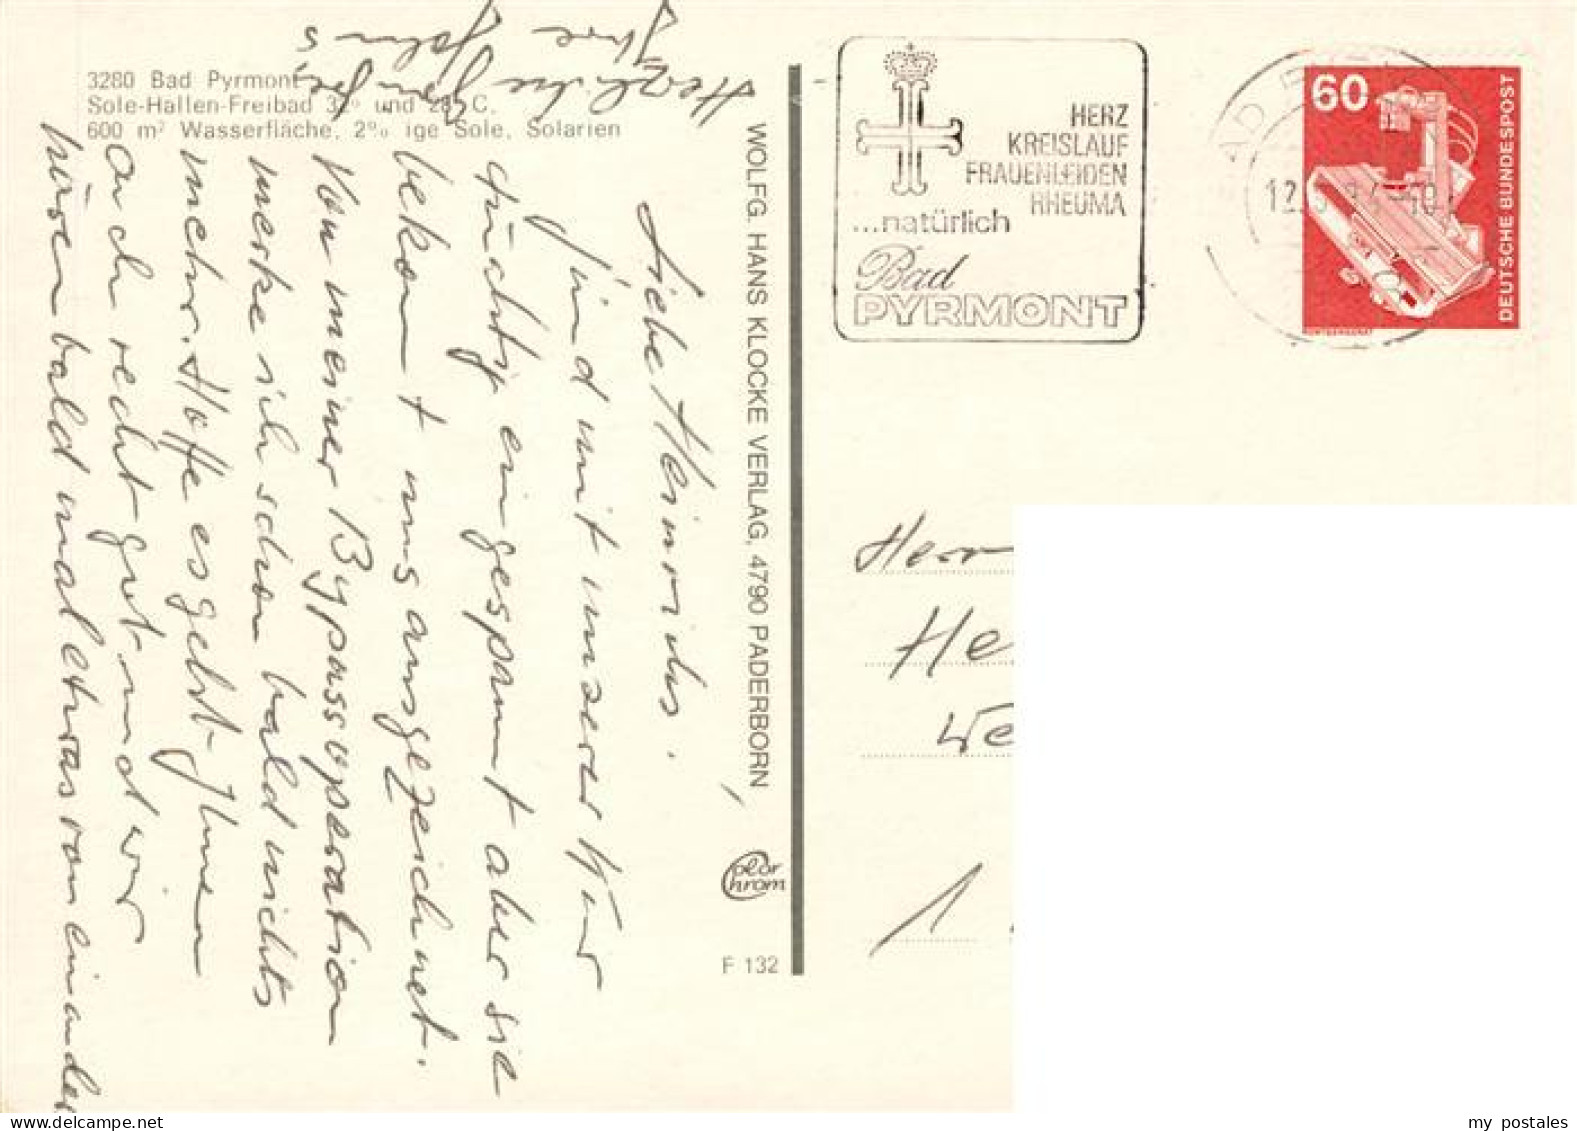 3280 Bad Pyrmont
Sole-Hallen-Freibad und 28° C,
600 m² Wasserfläche, 2% ige Sole, Solarien
Liebe Heinrichs.
sind mit unserer Kur
tüchtig eingespannt aber sie
bekomt uns ausgezeichnet.
Von meiner Bypassoperation
merke ich schon bald nichts
mehr. Hoffe es geht Ihnen
auch recht gut und wir
hören bald mal etwas voneinander
Herzliche Grüße
Ihre
Johns
WOLFG. HANS KLOCKE VERLAG, 4790 PADERBORN
Color
Chrom
F 132
HERZ
KREISLAUF
FRAUENLEIDEN
RHEUMA
...natürlich
Bad
PYRMONT
60
DEUTSCHE BUNDESPOST
Herr
He
We
1
my postales